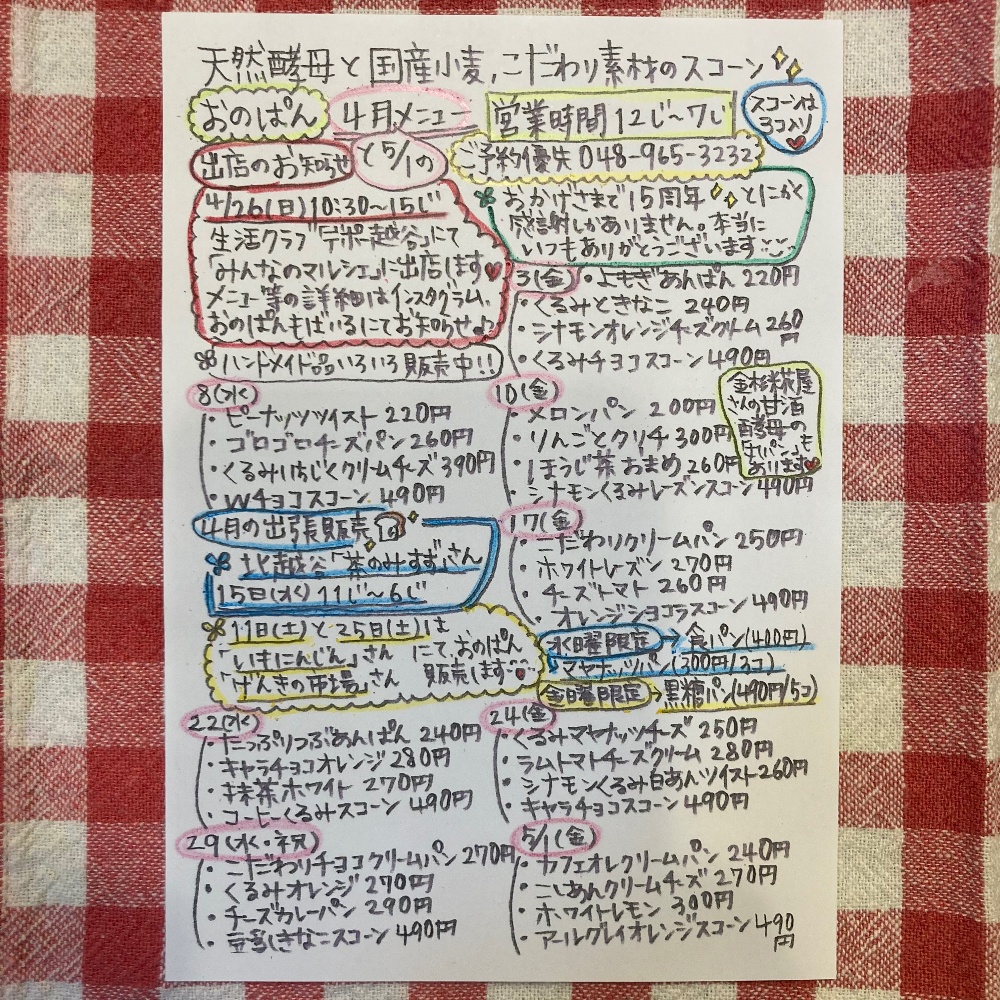 天然酵母と国産小麦、こだわり素材のスコーン
おのぱん
4月メニュー
営業時間 12じ〜7じ
スコーンは
3コ入り
出店のお知らせ
と5/1の
ご予約優先 048-965-3232
4/26(日)10:30〜15じ
生活クラブ「デポー越谷」にて
「みんなのマルシェ」に出店します
メニュー等の詳細はインスタグラム、
おのぱんもばいるにてお知らせ♪
ハンドメイド品いろいろ販売中!!
おかげさまで15周年 とにかく
感謝しかありません。本当に
いつもありがとうございます
3(金)
・よもぎあんぱん 220円
・くるみときなこ 240円
・シナモンオレンジチーズクリーム 260
円
・くるみチョコスコーン 490円
8(水)
・ピーナッツツイスト 220円
・ゴロゴロチーズパン 260円
・くるみいちじくクリームチーズ 390円
・Wチョコスコーン 490円
10(金)
・メロンパン 200円
・りんごとクリチ 300円
・ほうじ茶おまめ 260円
・シナモンくるみレーズンスコーン 490円
金杉糀屋
さんの甘酒
酵母の
パン」も
あります
4月の出張販売
北越谷「茶のみすず」さん
15日(水) 11じ〜6じ
17(金)
・こだわりクリームパン 250円
・ホワイトレーズン 270円
・チーズトマト 260円
・オレンジショコラスコーン 490円
11日(土)と25日(土)は
「いきにんじん」さん
「げんきの市場」さん
にて、おのぱん
販売します
水曜限定→食パン(400円)
マヤナッツパン(300円/3コ)
金曜限定→黒糖パン(490円/5コ)
22(水)
・たっぷりつぶあんぱん 240円
・キャラチョコオレンジ 280円
・抹茶ホワイト 270円
・コーヒーくるみスコーン 490円
24(金)
・くるみマヤナッツチーズ 250円
・ラムトマトチーズクリーム 280円
・シナモンくるみ白あんツイスト 260円
・キャラチョコスコーン 490円
29(水・祝)
・こだわりチョコクリームパン 270円
・くるみオレンジ 270円
・チーズカレーパン 290円
・豆乳きなこスコーン 490円
5/1(金)
・カフェオレクリームパン 240円
・こしあんクリームチーズ 270円
・ホワイトレモン 300円
・アールグレイオレンジスコーン 490
円